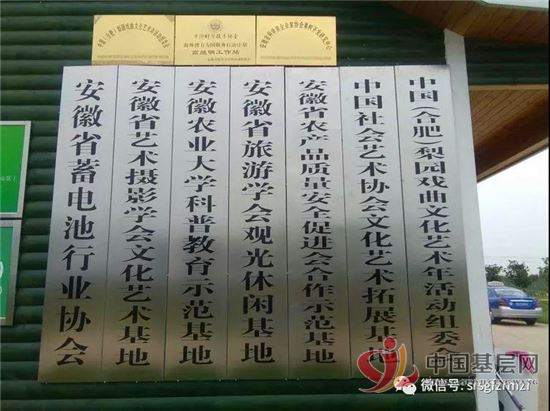 中国科学技术协会
海外智力为国服务行动计划
安徽省蓄电池行业协会
安徽省艺术摄影学会文化艺术基地
安徽农业大学科普教育示范基地
安徽省旅游学会观光休闲基地
安徽省农产品质量安全促进会合作示范基地
中国社会艺术协会文化艺术拓展基地
中国(合肥)梨园戏曲文化艺术年活动组委
中国基层网
微信号: srsgfzrmzf